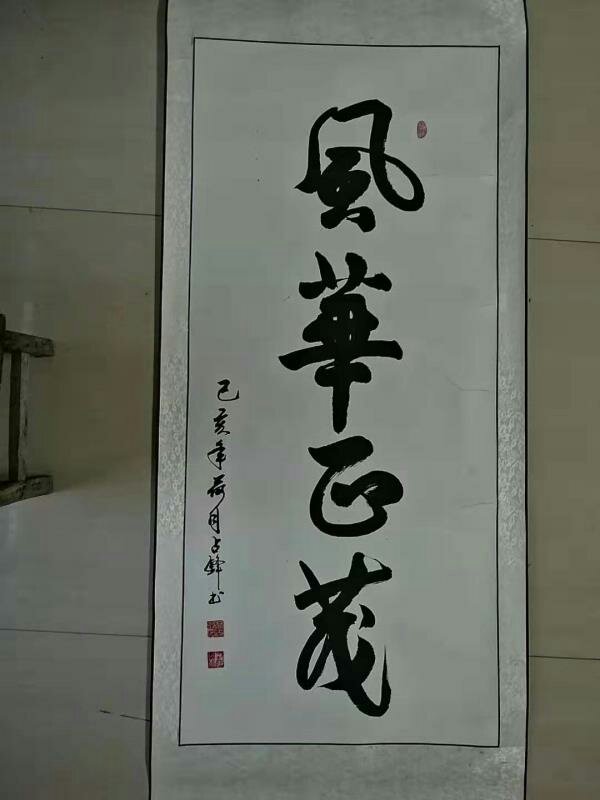 風華正茂
己亥年荷月占鋒书